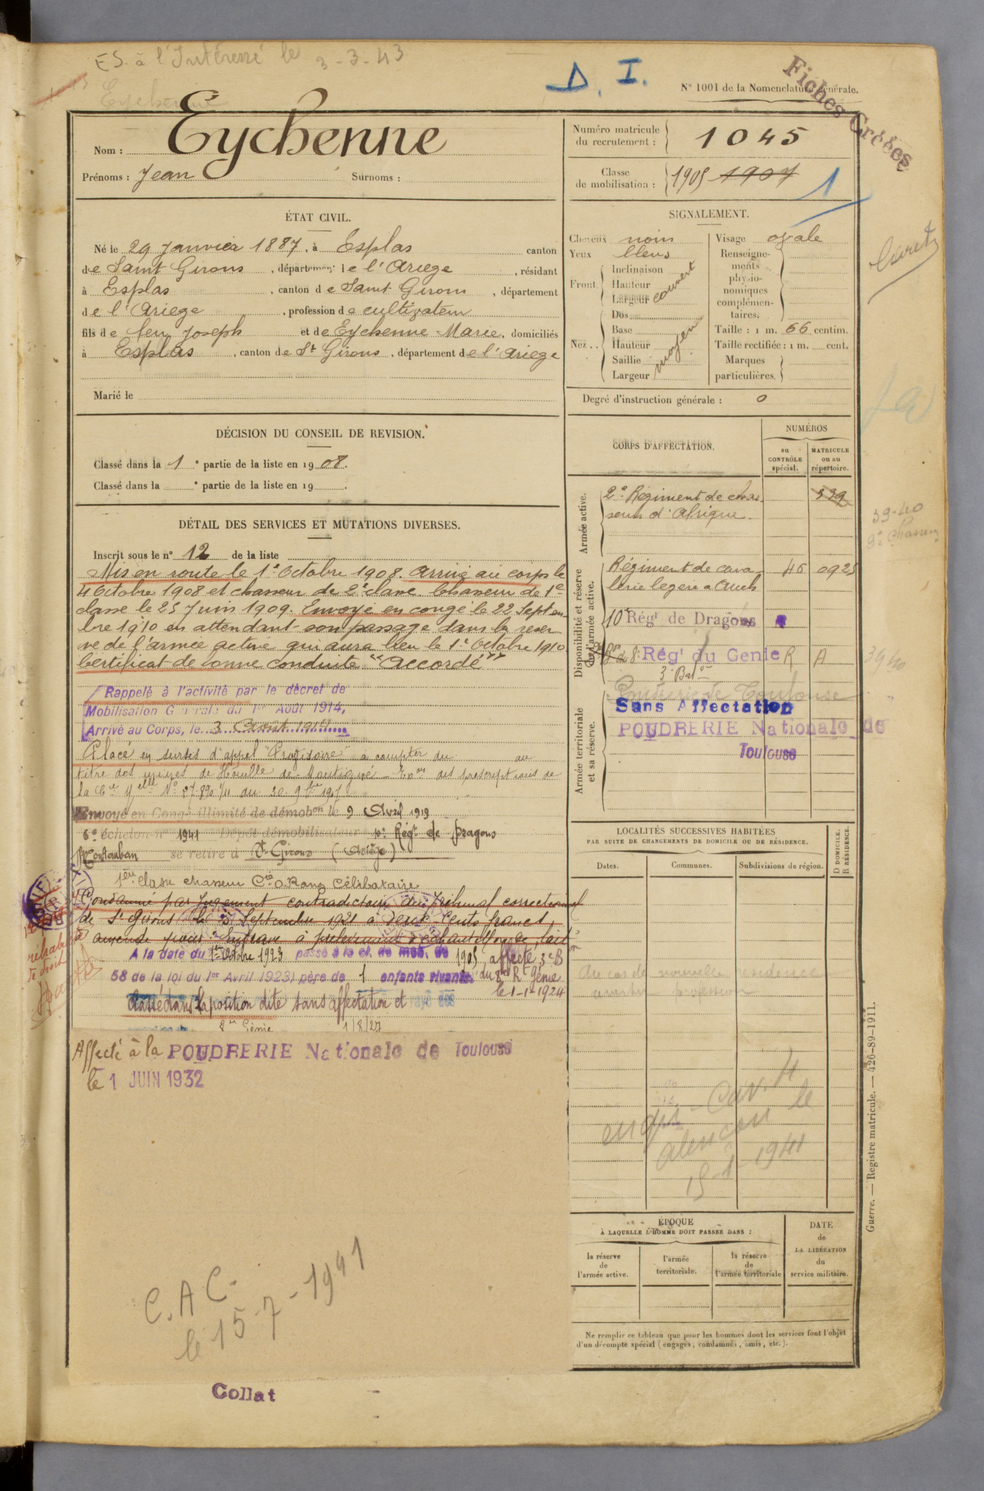 ES à l'Intéressé le 3-3-43
D. I.
N° 1001 de la Nomenclature générale.
Fiches Créées
Eychenne
Nom : Eychenne
Prénoms : Jean Surnoms :
Numéro matricule du recrutement : 1045
Classe de mobilisation : 1905 1907
1
ÉTAT CIVIL.
Né le 29 Janvier 1887, à Esplas canton
de Saint Girons, département de l'Ariège, résidant
à Esplas, canton de Saint Girons, département
de l'Ariege, profession de cultivateur
fils de feu Joseph et de Eychenne Marie, domiciliés
à Esplas, canton de St Girons, département de l'Ariege
Marié le
SIGNALEMENT.
Cheveux noirs
Yeux bleus
Front Inclinaison
Hauteur
Largeur
couvert
Nez.. Dos
Base
Hauteur
Saillie
Largeur
moyen
Visage ovale
Renseignements physionomiques complémentaires.
Taille : 1 m. 66 centim.
Taille rectifiée : 1 m. cent.
Marques particulières.
Degré d'instruction générale : 0
DÉCISION DU CONSEIL DE REVISION.
Classé dans la 1e partie de la liste en 1908.
Classé dans la e partie de la liste en 19 .
DÉTAIL DES SERVICES ET MUTATIONS DIVERSES.
Inscrit sous le n° 12 de la liste
Mis en route le 1er Octobre 1908. Arrivé au corps le
4 Octobre 1908 et chasseur de 2e classe. Chasseur de 1e
classe le 25 Juin 1909. Envoyé en congé le 22 Septem
bre 1910 en attendant son passage dans la reser
ve de l'armée active qui aura lieu le 1er Octobre 1910
Certificat de bonne conduite "accordé"
Rappelé à l'activité par le décret de
Mobilisation Générale du 1er Août 1914,
Arrivé au Corps, le 3 Août 1914
Placé en sursis d'appel à compter du au
titre des mines de Houille de
Envoyé en Congé illimité de démobon le 9 Avril 1919
6e échelon n° 1941 Dépôt démobilisateur 10e Régt de Dragons
Montauban se retire à St Girons (Ariège)
1ère classe chasseur Célibataire
Condamné par Jugement contradictoire du Tribunal correctionnel
de St Girons du Septembre 1921 à Cents francs
amende pour
A la date du 1er Octobre 1923 passé à la cl. de mob. de 1905 affecté 3e B
58 de la loi du 1er Avril 1923) père de 1 enfants vivants du 8e Rt Génie
le 1-1-1924
Classé dans la position dite sans affectation et rayé des
8me Génie 1/8/27
Affecté à la POUDRERIE Nationale de Toulouse
le 1 JUIN 1932
C.A.C.
le 15-7-1941
Collat
CORPS D'AFFECTATION.
NUMÉROS
au CONTRÔLE spécial.
MATRICULE ou au répertoire.
Armée active.
2e Régiment de chas
seurs d'Afrique.
Disponibilité et réserve de l'armée active.
Régiment de cava 46 0925
lerie legere a Auch
10e Régt de Dragons
8e Régt du Génie R A
3e Baton
Poudrerie de Toulouse
Armée territoriale et sa réserve.
Sans Affectation
POUDRERIE Nationale de
Toulouse
39-40
LOCALITÉS SUCCESSIVES HABITÉES
PAR SUITE DE CHANGEMENTS DE DOMICILE OU DE RÉSIDENCE.
D DOMICILE.
R RÉSIDENCE.
Dates. Communes. Subdivisions de région.
Alençon le
1941
ÉPOQUE
À LAQUELLE L'HOMME DOIT PASSER DANS :
la réserve de l'armée active.
l'armée territoriale.
la réserve de l'armée territoriale
DATE de LA LIBÉRATION du service militaire.
Ne remplir ce tableau que pour les hommes dont les services font l'objet
d'un décompte spécial (engagés, condamnés, omis, etc.).
Guerre. — Registre matricule. — 426-89-1911.